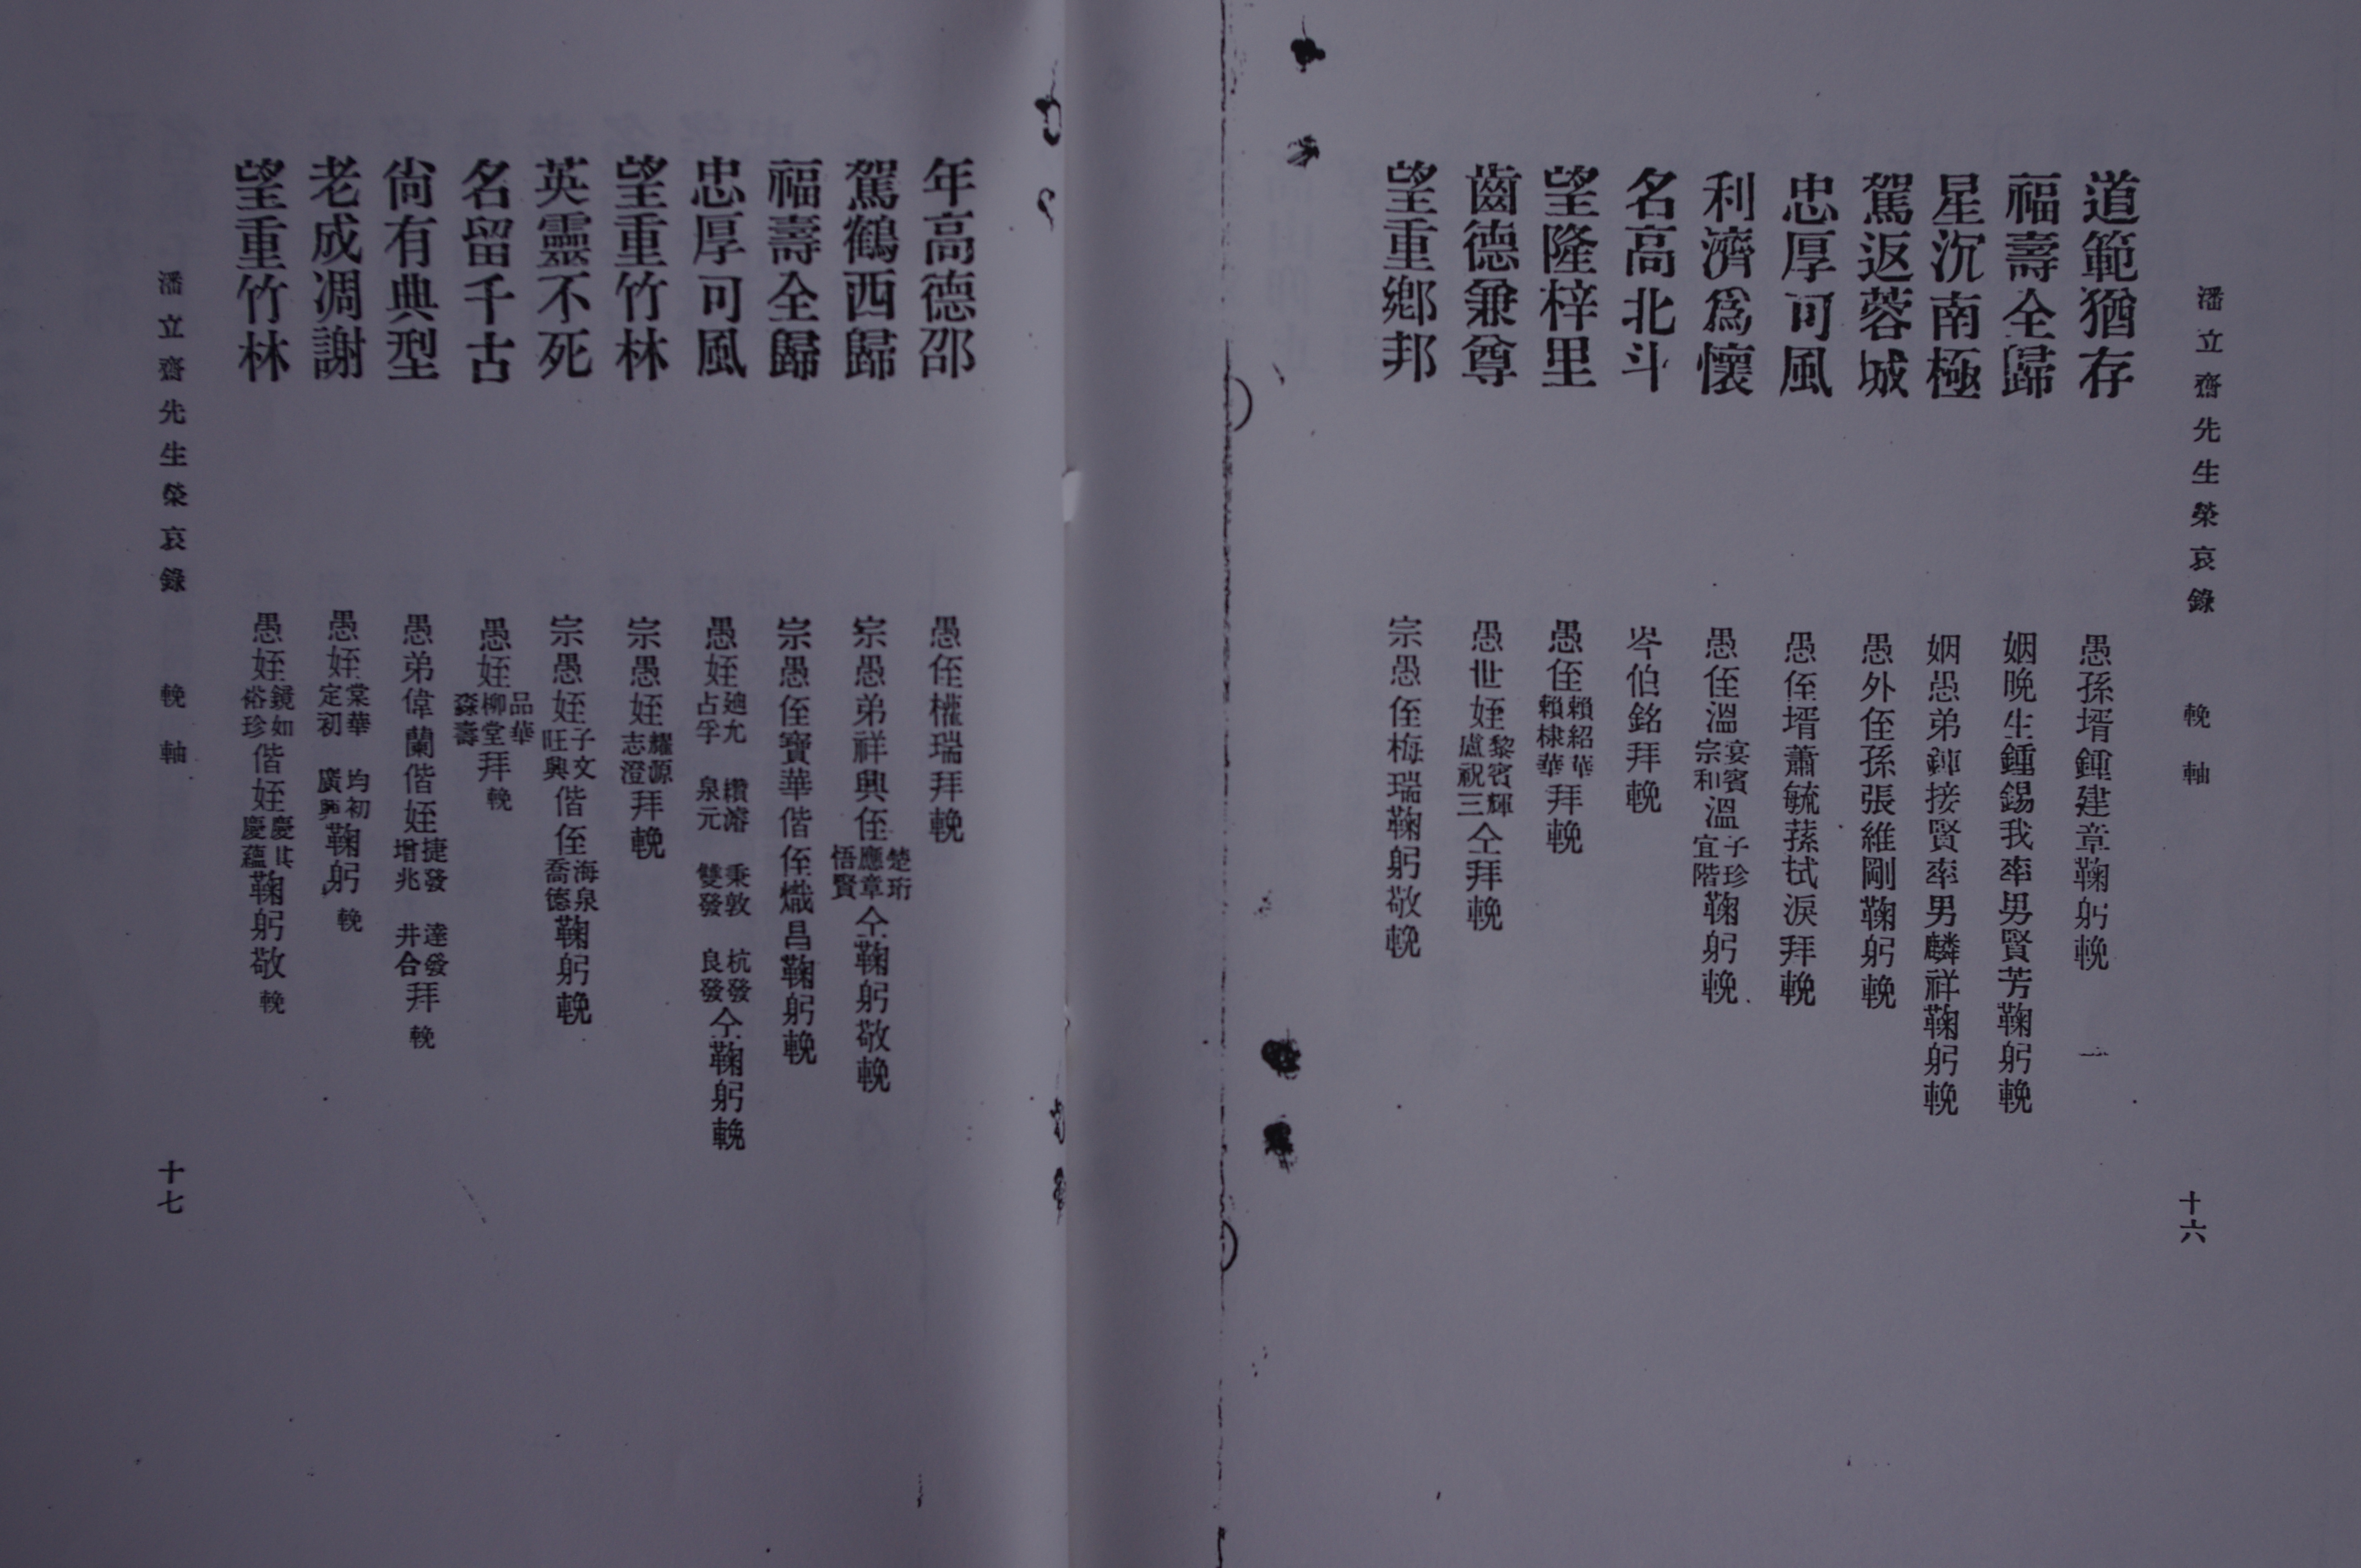 潘立齋先生榮哀錄 輓軸 十六
道範猶存 愚孫壻鍾建章鞠躬輓
福壽全歸 姻晚生鍾錫我率男賢芳鞠躬輓
星沉南極 姻愚弟鍾接賢率男麟祥鞠躬輓
駕返蓉城 愚外侄孫張維剛鞠躬輓
忠厚可風 愚侄壻蕭毓蓀拭淚拜輓
利濟爲懷 愚侄溫宴賓宗和溫子珍宜階鞠躬輓
名高北斗 岑伯銘拜輓
望隆梓里 愚侄賴紹華賴棣華拜輓
齒德兼尊 愚世姪黎賓輝盧祝三仝拜輓
望重鄉邦 宗愚侄梅瑞鞠躬敬輓
年高德邵 愚侄權瑞拜輓
駕鶴西歸 宗愚弟祥興侄楚珩應章悟賢仝鞠躬敬輓
福壽全歸 宗愚侄寶華偕侄熾昌鞠躬輓
忠厚可風 愚姪廸允占孚 纘濬泉元 秉敦雙發 杭發良發仝鞠躬輓
望重竹林 宗愚姪耀源志澄拜輓
英靈不死 宗愚姪子文旺興偕侄海泉喬德鞠躬輓
名留千古 愚姪品華柳堂森壽拜輓
尙有典型 愚弟偉蘭偕姪捷發增兆 達發井合拜輓
老成凋謝 愚姪棠華定初 均初廣興鞠躬輓
望重竹林 愚姪鏡如裕珍偕姪慶其慶蘊鞠躬敬輓
潘立齋先生榮哀錄 輓軸 十七